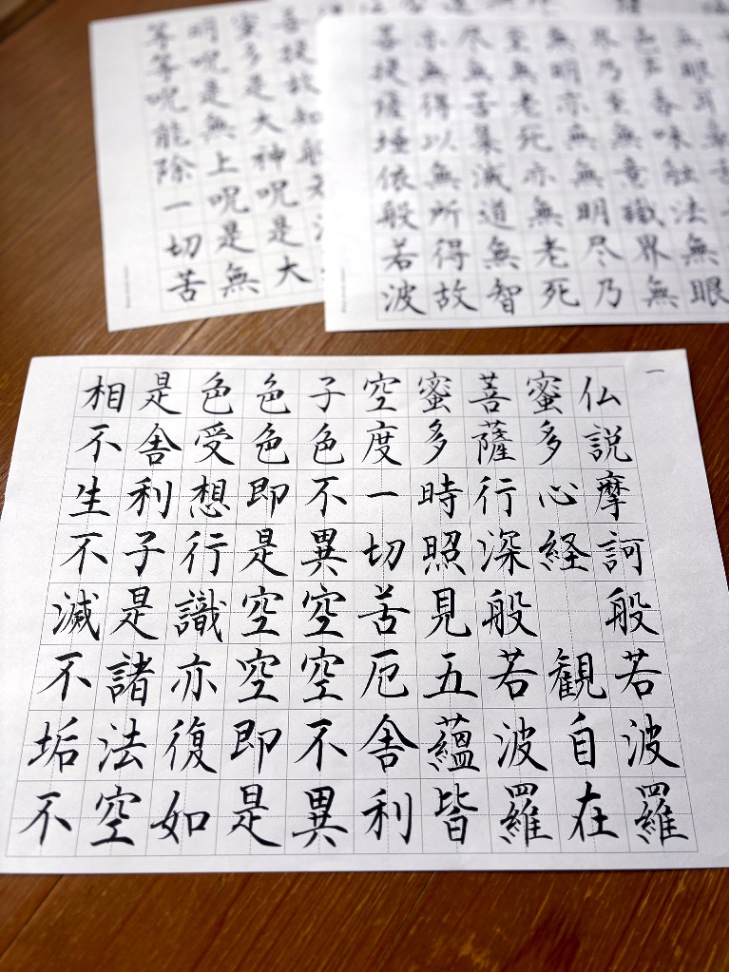 一
仏説摩訶般若波羅
蜜多心経 観自在
菩薩行深般若波羅
蜜多時照見五蘊皆
空度一切苦厄舎利
子色不異空空不異
色色即是空空即是
色受想行識亦復如
是舎利子是諸法空
相不生不滅不垢不
色声香味触法無眼
界乃至無意識界無
無明亦無無明尽乃
至無老死亦無老死
尽無苦集滅道無智
亦無得以無所得故
菩提薩埵依般若波
菩提故知般若
蜜多是大神呪是大
明呪是無上呪是無
等等呪能除一切苦